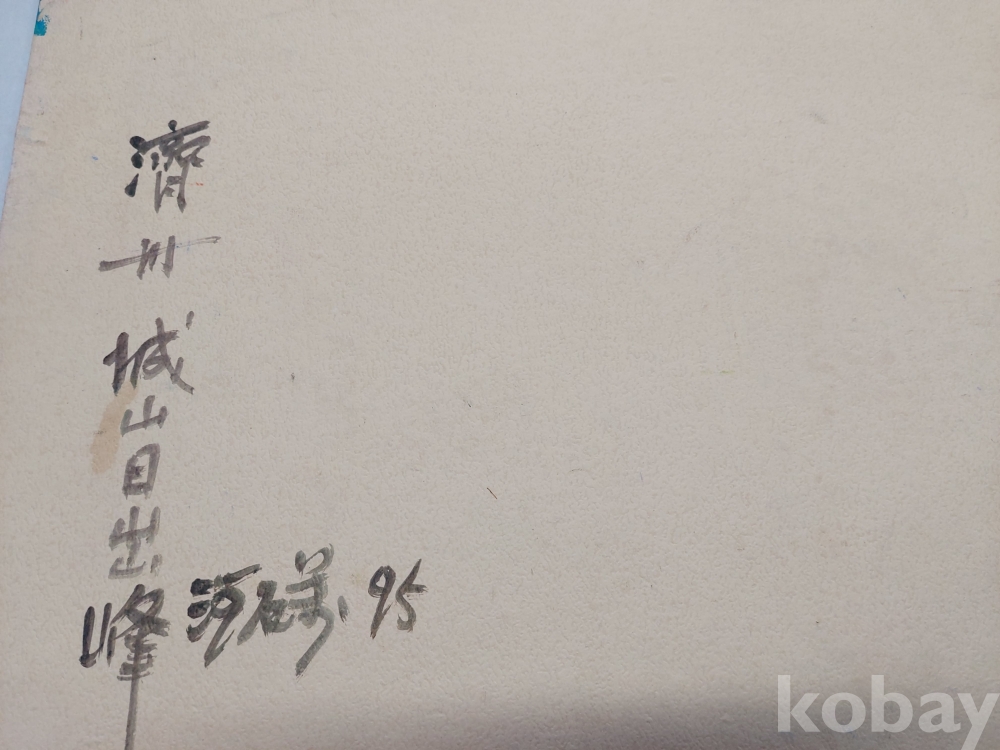 濟州 城山日出峰
河石 95
kobay